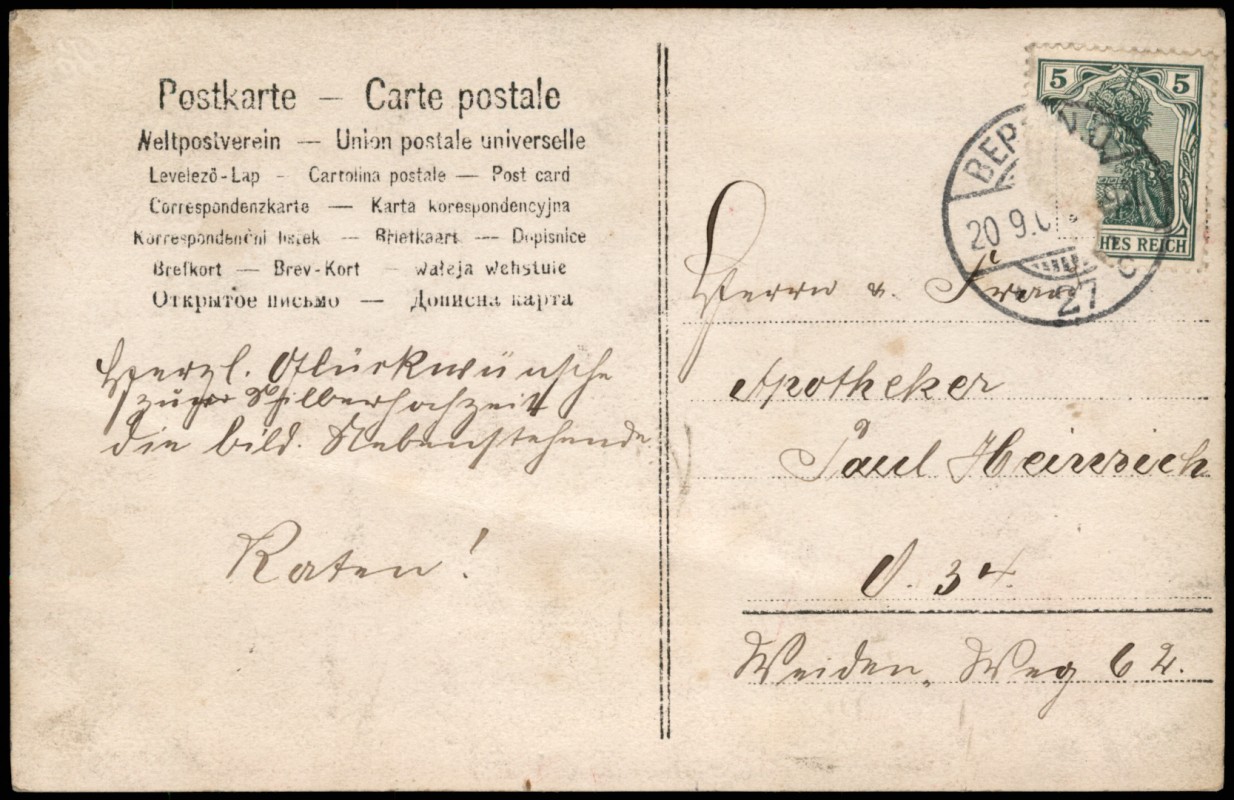 Postkarte — Carte postale
Weltpostverein — Union postale universelle
Levelező-Lap - Cartolina postale — Post card
Correspondenzkarte — Karta korespondencyjna
Korrespondenční lístek — Briefkaart — Dopisnice
Brefkort — Brev-Kort —
Открытое письмо — Дописна карта
5 5
HES REICH
20 9.0
27
Herrn u. Frau
Apotheker
Paul Heinrich
O. 34
Weiden. Weg 62.
Herzl. Glückwünsche
zur Silberhochzeit
die bild. Nebenstehende
Katen!